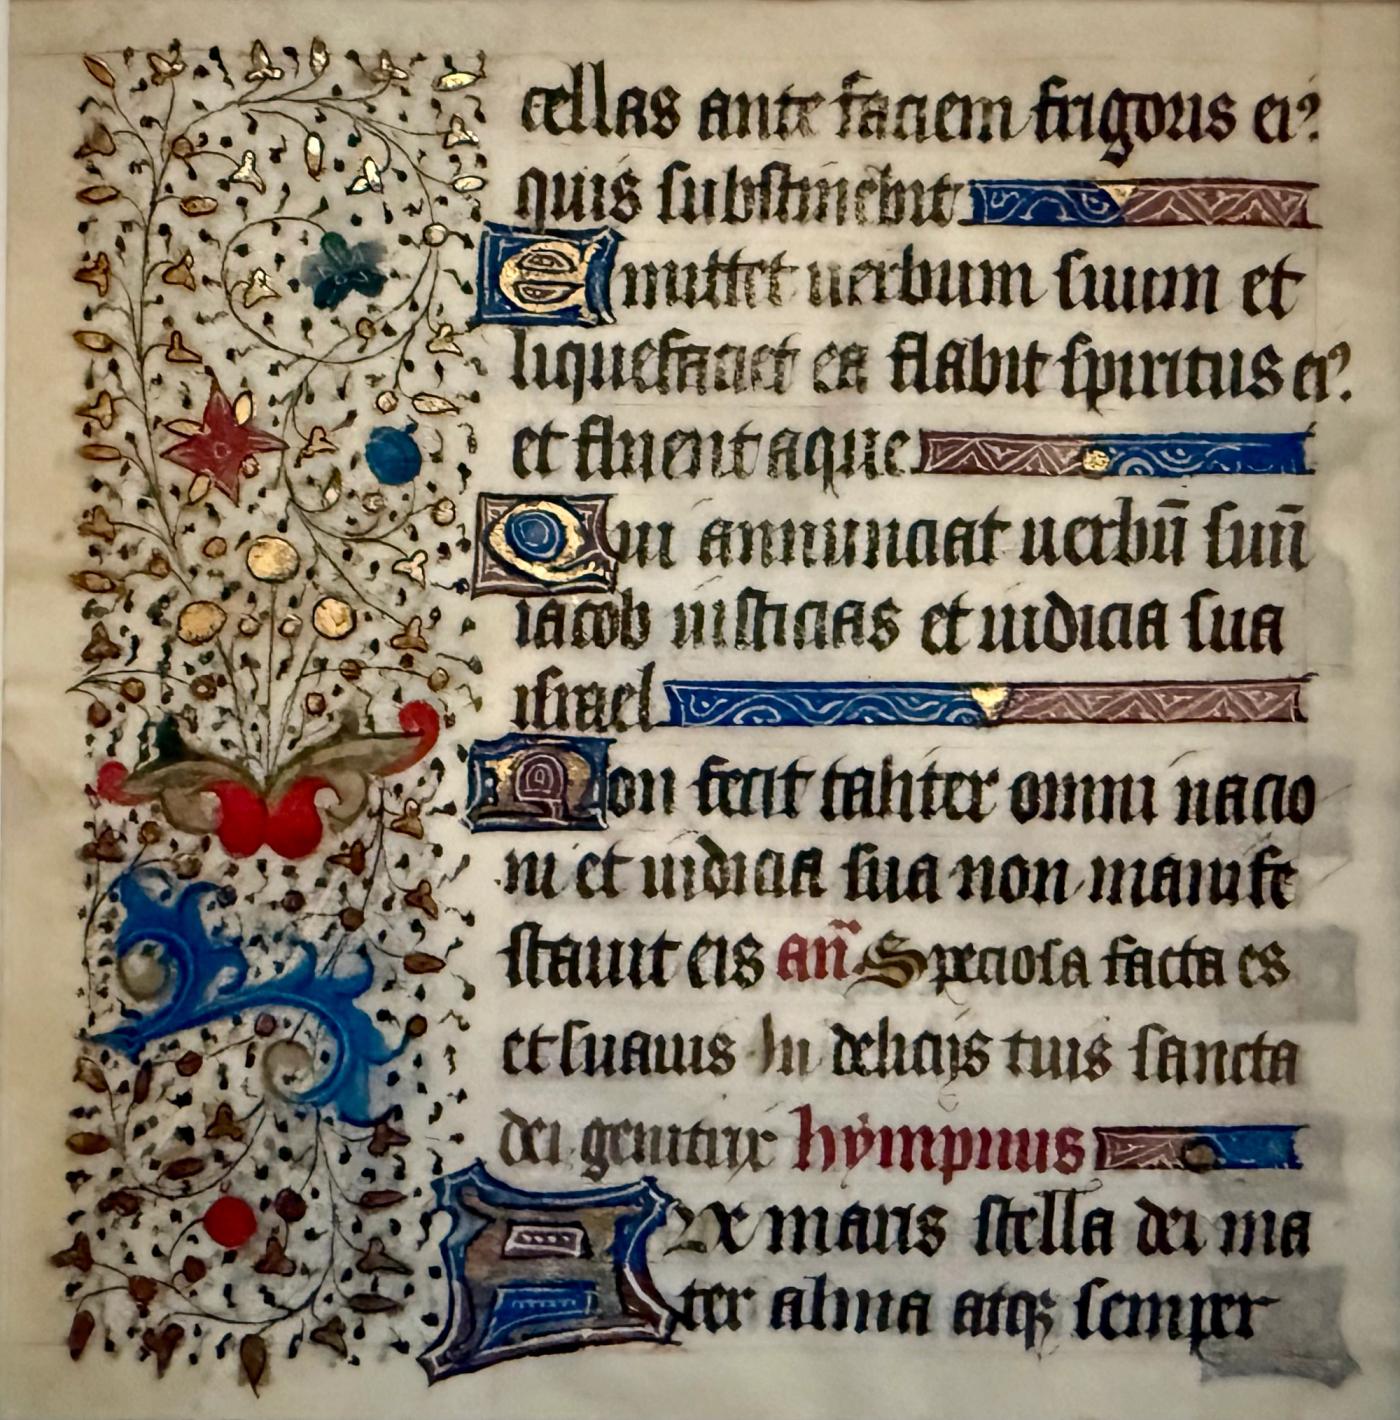 cellas ante faciem frigoris eiꝰ.
quis substinebit.
Emittet uerbum suum et
liquefaciet ea flabit spiritus eiꝰ.
et fluent aque.
Qui annunciat uerbū suū
iacob iusticias et iudicia sua
israel.
Non fecit taliter omni nacio
ni et iudicia sua non manife
stauit eis an̄. Speciosa facta es
et suauis In delicijs tuis sancta
dei genitrix hympnus
AVe maris stella dei ma
ter alma atqꝫ semper